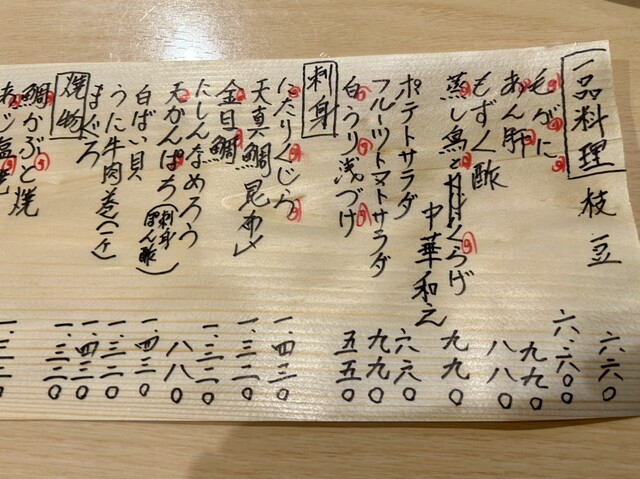 一品料理
枝豆 六六〇
毛がに 六.六〇〇
あん肝 九九〇
もずく酢 八八〇
蒸し魚と
くらげ
中華和え 九九〇
ポテトサラダ 六六〇
フルーツトマトサラダ 九九〇
白うり浅づけ 五五〇
刺身
にたりくじら 一.四三〇
天真鯛昆布〆 一.三二〇
金目鯛 一.三二〇
にしんなめろう 八八〇
天かんぱち(刺身 ぽん酢) 一.四三〇
白ばい貝 一.三二〇
うに牛肉巻(一ケ) 一.四三〇
まぐろ 一.三二〇
焼物
鯛かぶと焼 一.三二〇
あじ塩焼